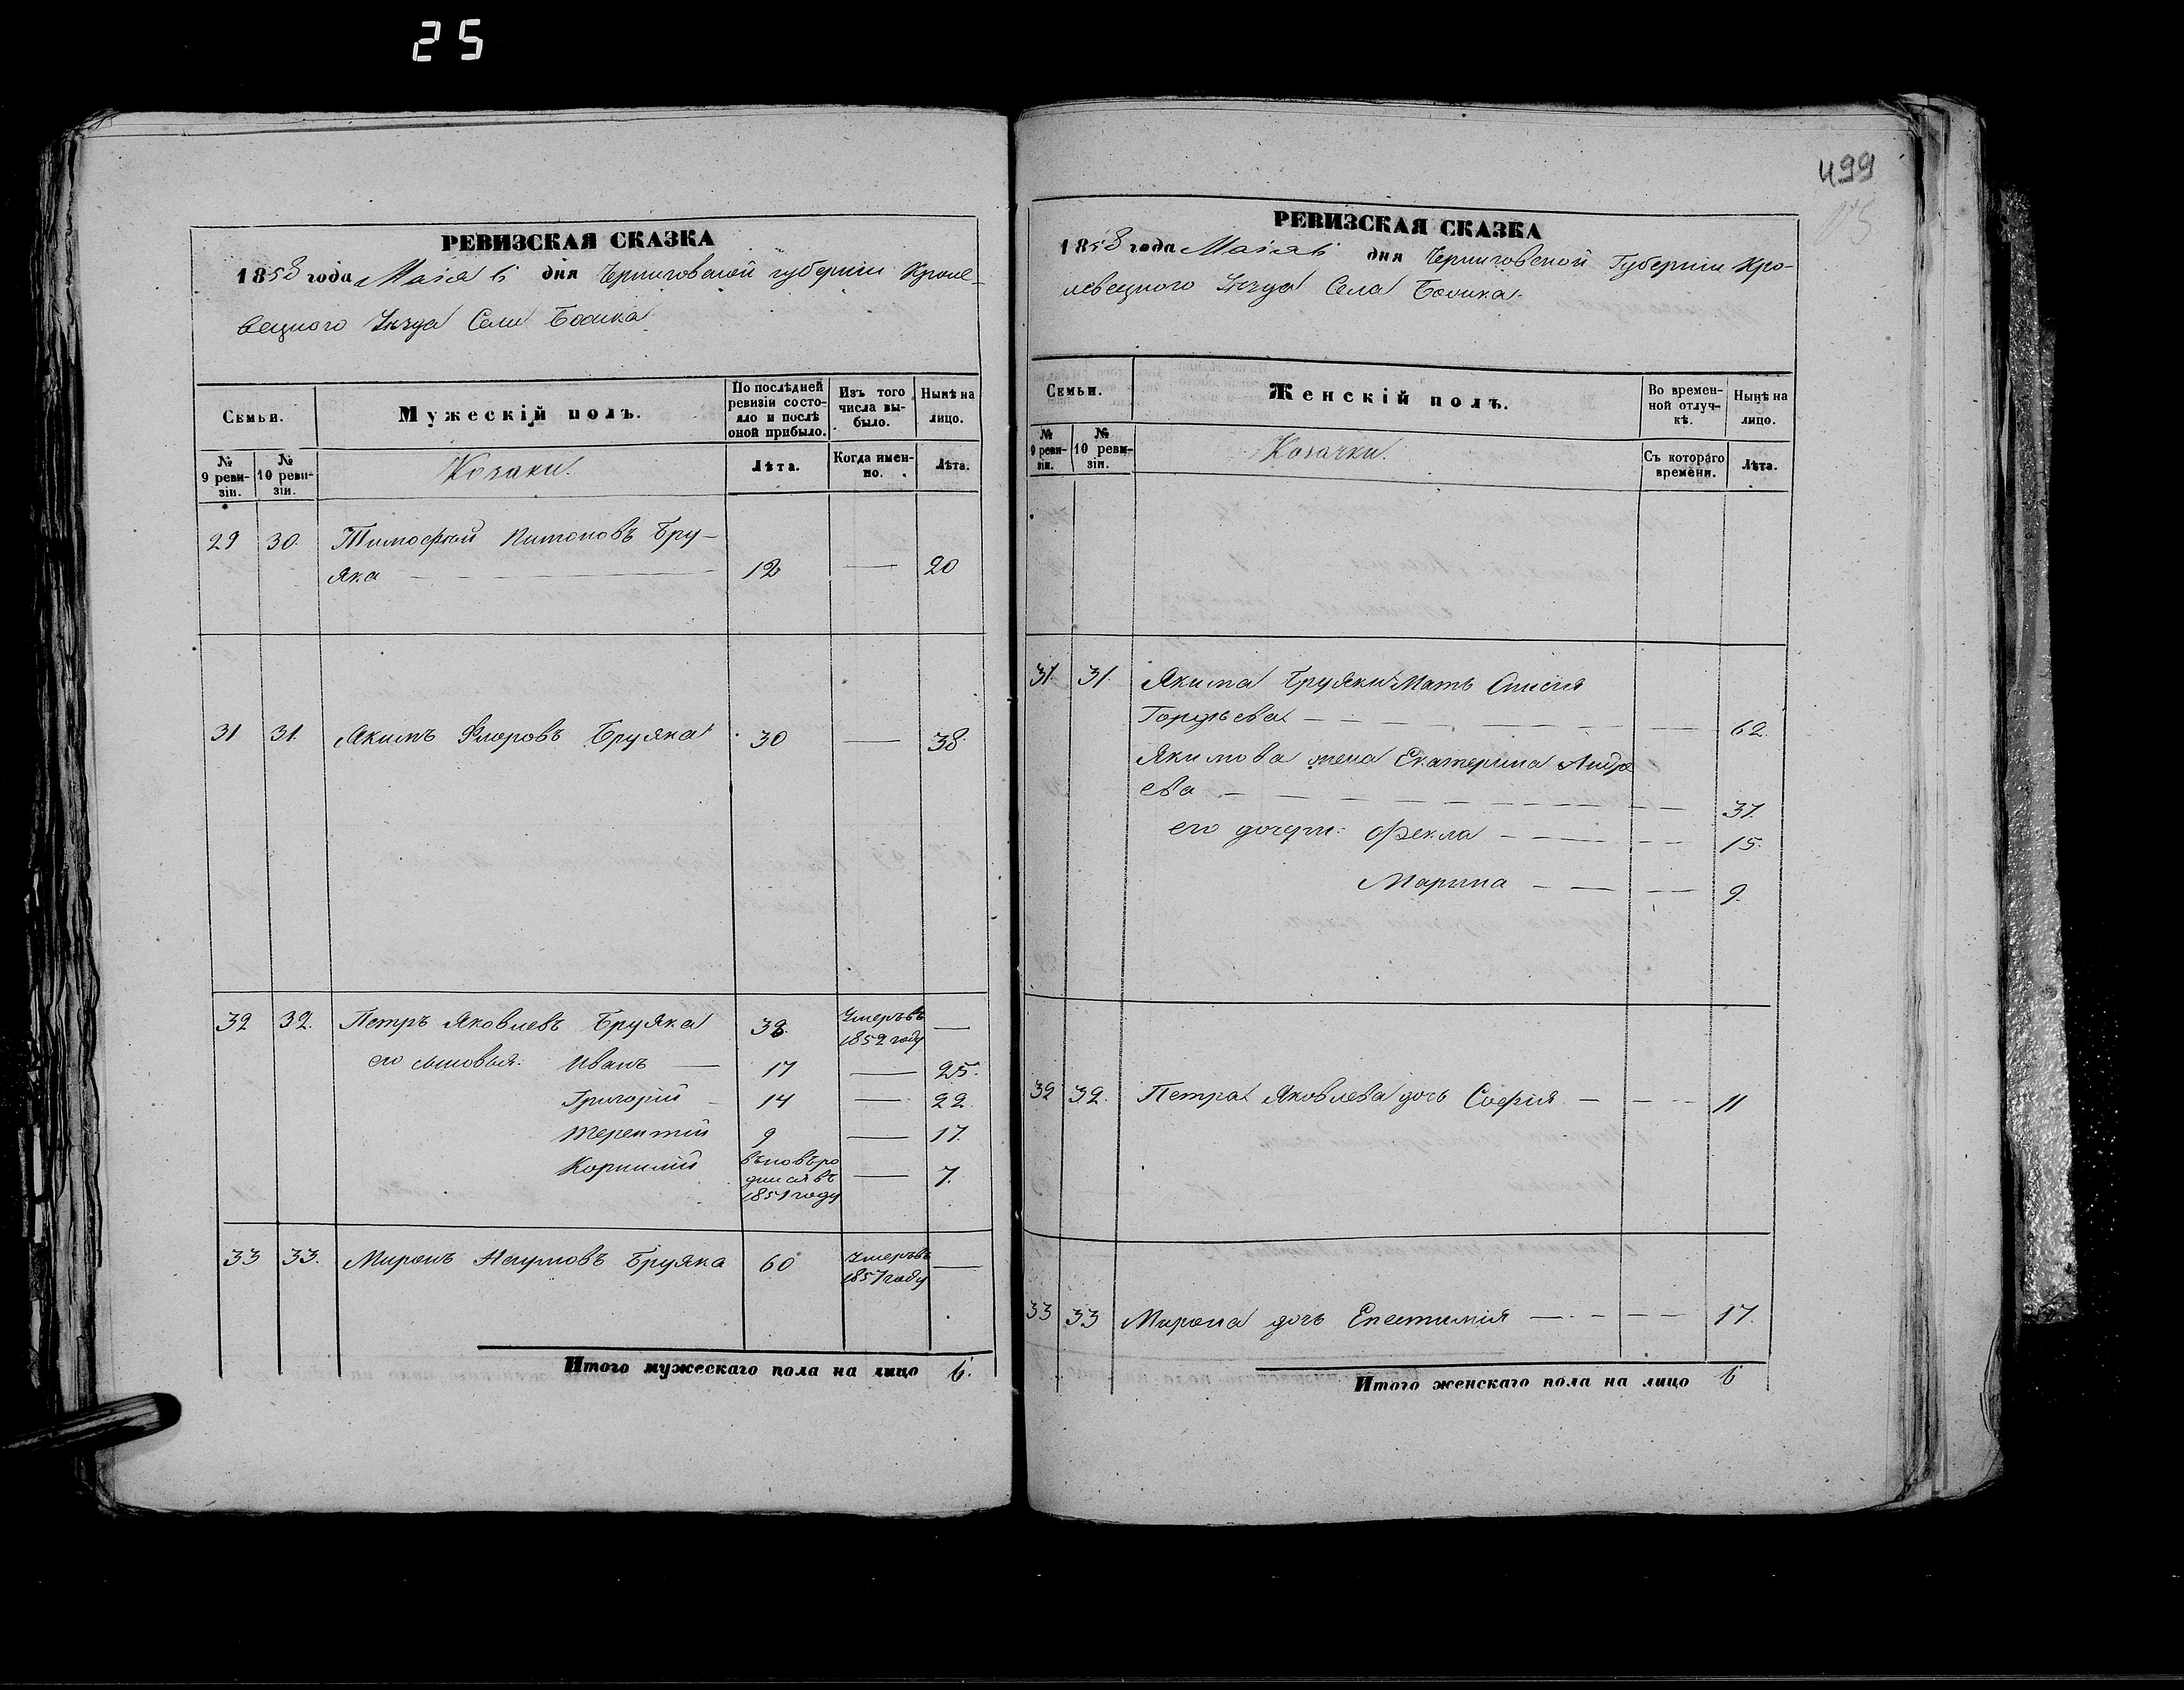 25
499
РЕВИЗСКАЯ СКАЗКА
1858 года Маія 6 дня Черниговской губерніи Кроле-
вецкого Уѣзда Села
Семьи.
Мужескій полъ.
По послѣдней ревизіи состо-
яло и послѣ оной прибыло.
Изъ того числа вы-
было.
Нынѣ на лицо.
№ 9 реви-
зіи.
№ 10 реви-
зіи.
Козаки.
Лѣта.
Когда имен-
но.
Лѣта.
29 30. Тимофей Бру-
яка — 12 — 20
31 31. Якимъ Флоровъ Бруяка 30 — 38.
32 32. Петръ Яковлевъ Бруяка 38. Умеръ въ 1852 году —
его сыновья: Иванъ — 17 — 25.
Григорій — 14 — 22.
Терентий 9 — 17.
Корнилій вновь ро
дился въ
1851 году — 7.
33 33. Миронъ Наумовъ Бруяка 60 Умеръ въ 1857 году —
Итого мужескаго пола на лицо 6.
РЕВИЗСКАЯ СКАЗКА
1858 года Маія 6 дня Черниговской Губерніи Кро-
левецкого Уѣзда Села
Семьи.
Женскій полъ.
Во времен-
ной отлуч-
кѣ.
Нынѣ на лицо.
№ 9 реви-
зіи.
№ 10 реви-
зіи.
Козачки.
Съ котораго времени.
Лѣта.
31. 31. Якима Бруяки Мать
Гордѣева — — 62.
Якимова жена Екатерина Андре
ева — — 37.
его дочери: Фекла — — 15.
Марина — — 9.
32 32. Петра Яковлева дочь Софія — — 11
33 33 Мирона дочь Епестимія — — 17.
Итого женскаго пола на лицо 6